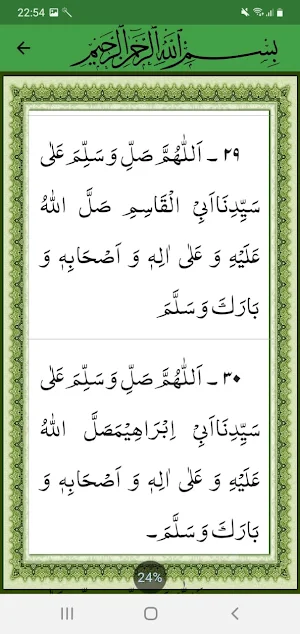 22:54
بِسْمِ اللهِ الرَّحْمٰنِ الرَّحِيْمِ
٢٩ ـ اَللّٰهُمَّ صَلِّ وَسَلِّمَ عَلٰى
سَيِّدِنَا اَبِىْ الْقَاسِمِ صَلَّ اللهُ
عَلَيْهِ وَ عَلٰى اٰلِهٖ وَ اَصْحَابِهٖ وَ
بَارَكَ وَسَلَّمَ
٣٠ ـ اَللّٰهُمَّ صَلِّ وَسَلِّمَ عَلٰى
سَيِّدِنَا اَبِىْ اِبْرَاهِيْمَصَلَّ اللهُ
عَلَيْهِ وَ عَلٰى اٰلِهٖ وَ اَصْحَابِهٖ وَ
بَارَكَ وَسَلَّمَ۔
24%